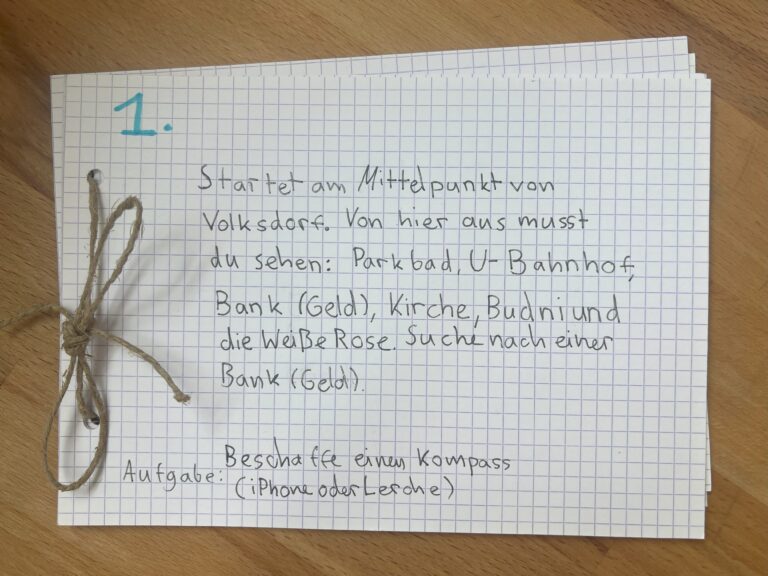 1.
Startet am Mittelpunkt von
Volksdorf. Von hier aus musst
du sehen: Parkbad, U-Bahnhof,
Bank (Geld), Kirche, Budni und
die Weiße Rose. Suche nach einer
Bank (Geld).
Aufgabe: Beschaffe einen Kompass
(iPhone oder Lerche)